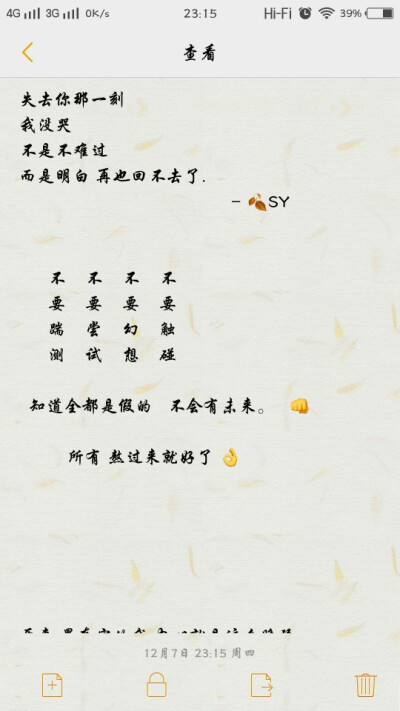 4G 3G 0K/s 23:15 Hi-Fi 39%
查看
失去你那一刻
我没哭
不是不难过
而是明白 再也回不去了.
- 🍂SY
不 不 不 不
要 要 要 要
踹 尝 幻 触
测 试 想 碰
知道全都是假的 不会有未来。 👊
所有 熬过来就好了 👌
12月7日 23:15 周四